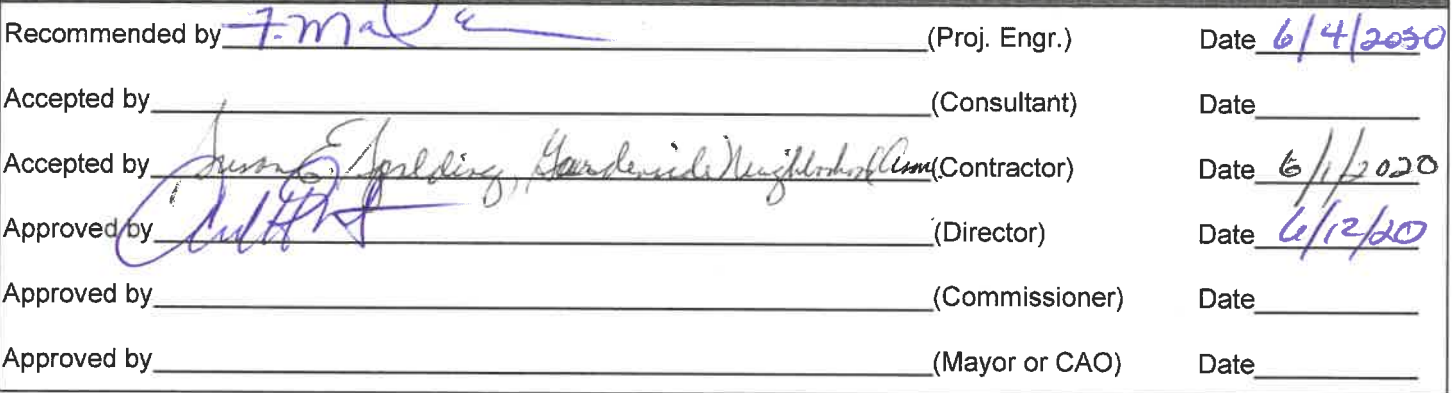 Recommended by F. Mal (Proj. Engr.) Date 6/4/2020
Accepted by (Consultant) Date
Accepted by Susan E. Spalding, Gardenside Neighborhood Assn (Contractor) Date 6/1/2020
Approved by (Director) Date 6/12/20
Approved by (Commissioner) Date
Approved by (Mayor or CAO) Date